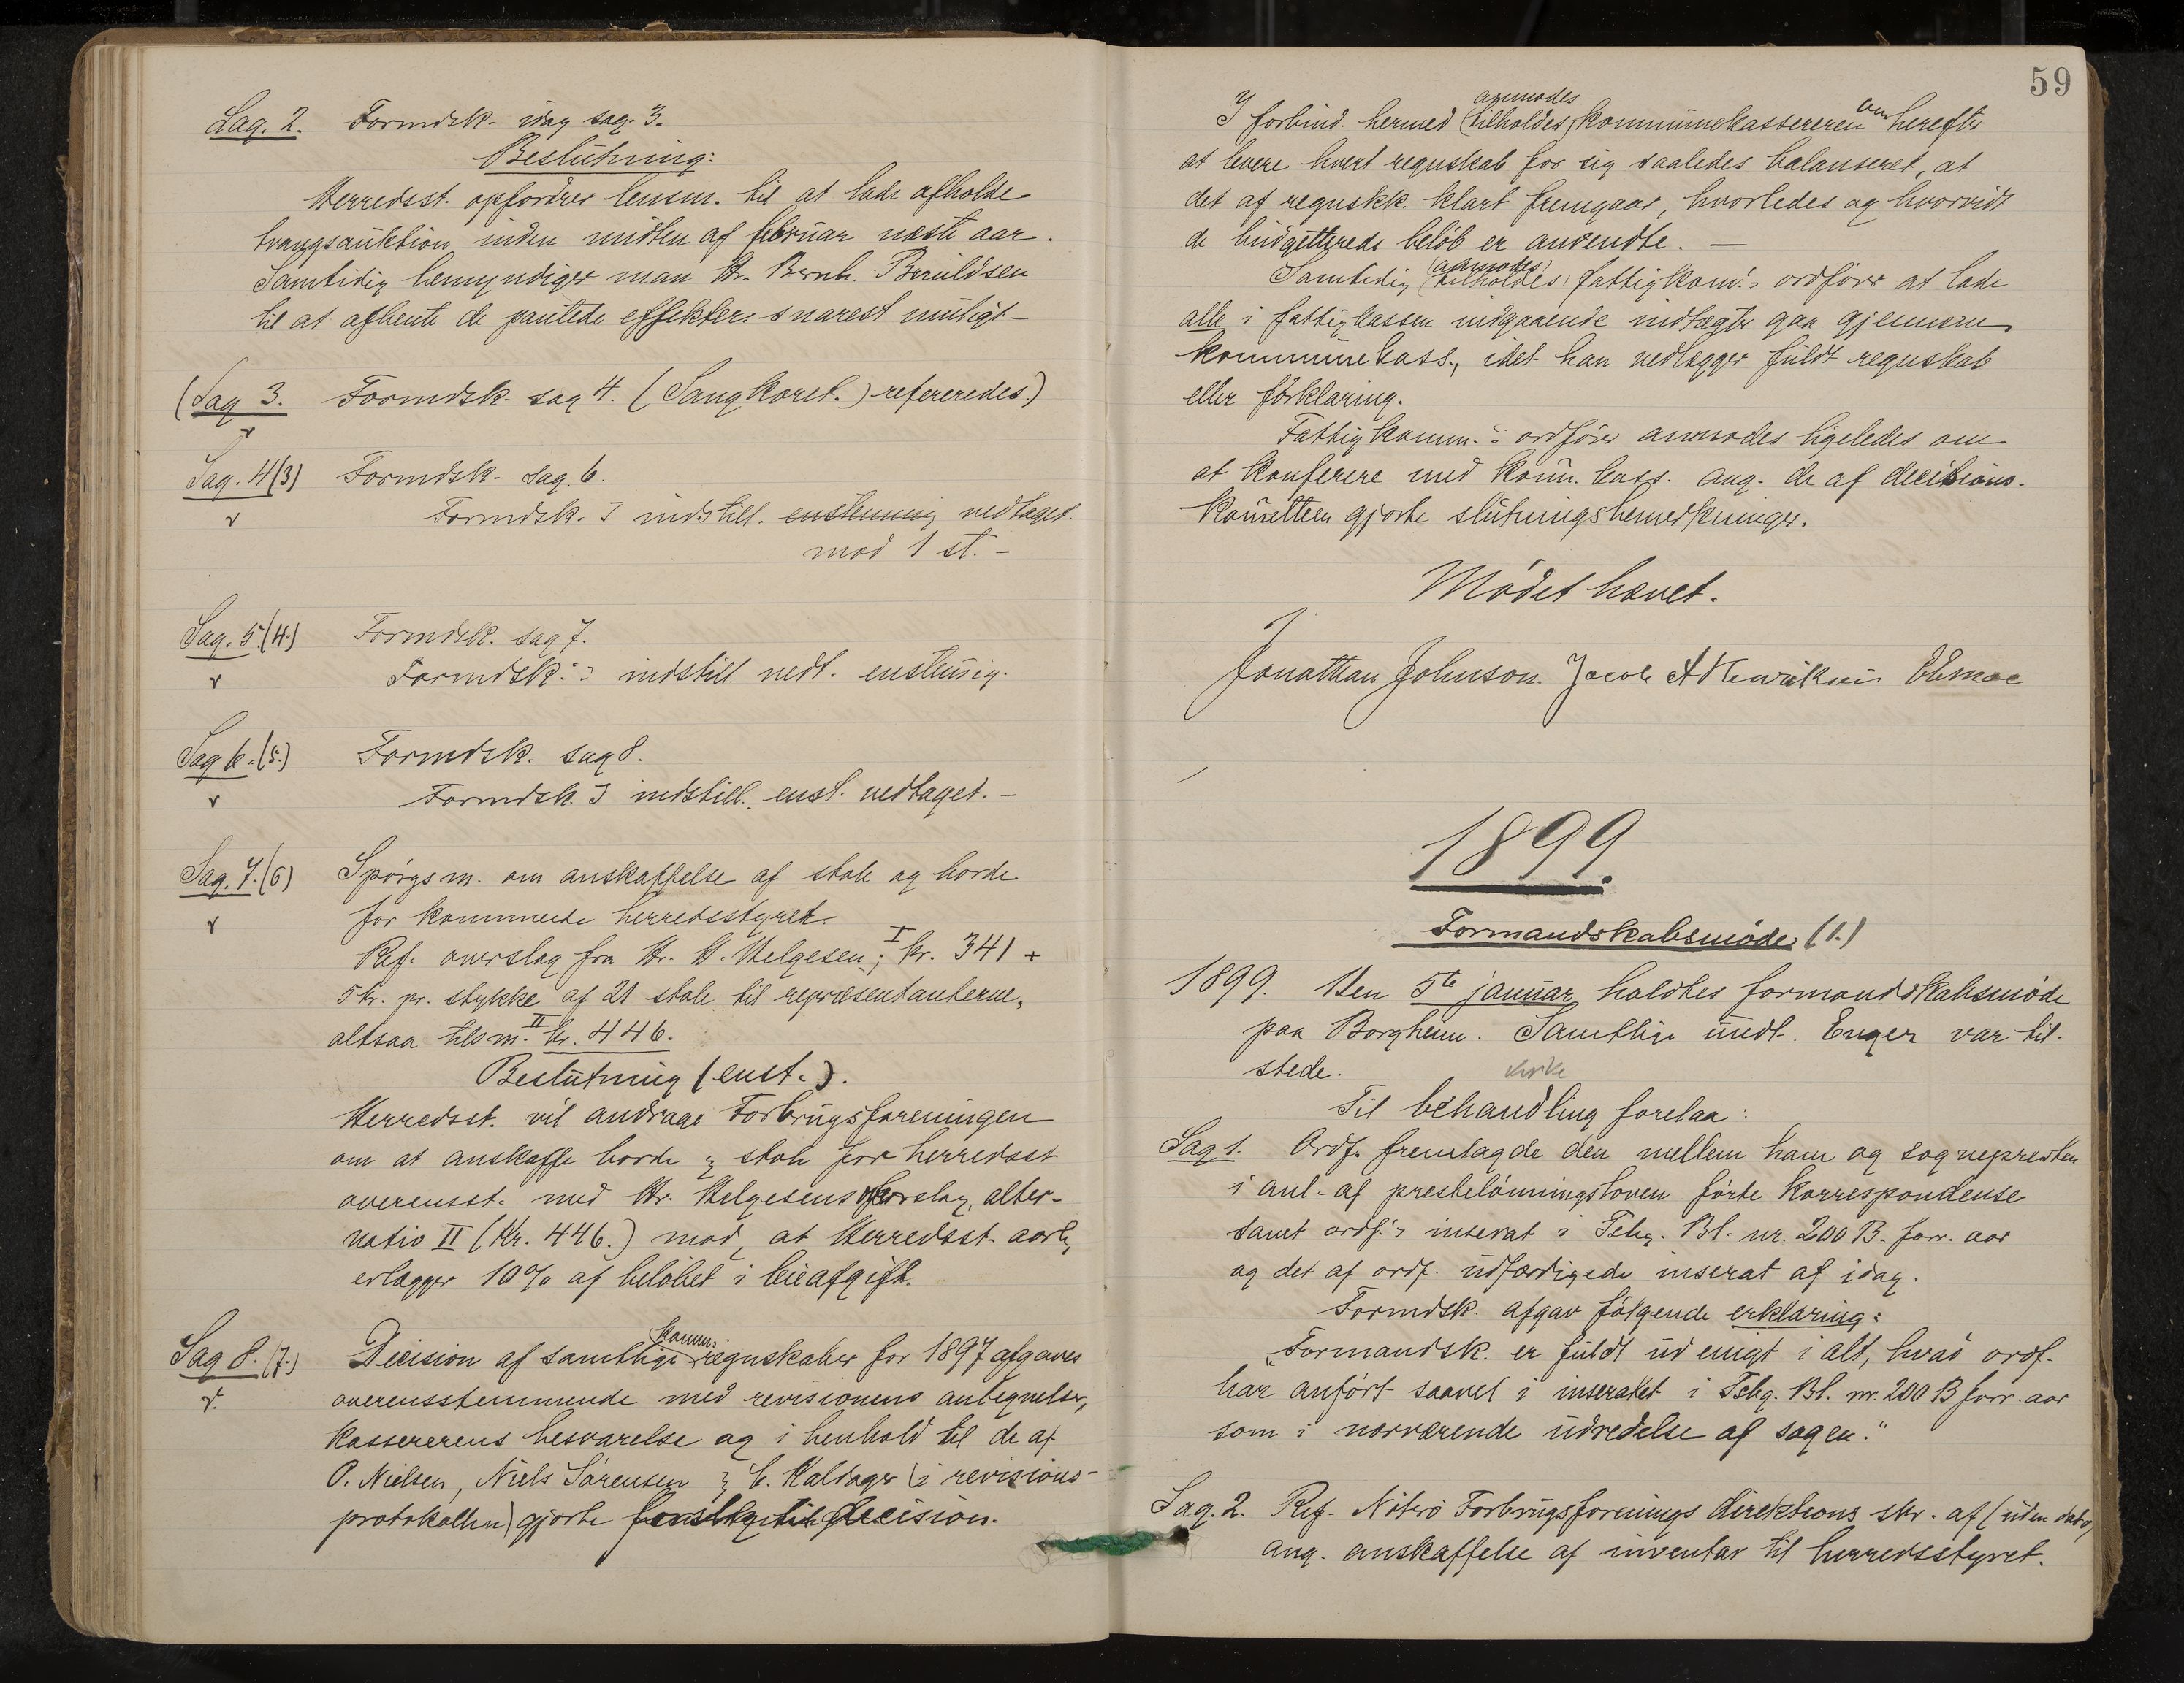 Sag. 2. Formdsk. idag sag. 3.
Beslutning:
Herredsst. opfordrer lensm. til at lade afholde
tvangsauktion inden midten af februar næste aar.
Samtidig bemyndiger man Hr. Bernh. Bauldsen
til at afhente de pantede effekter snarest muligt –
(Sag 3. Formdsk. sag 4. (Sangkoret.) refereredes.)
Sag. 4(3) Formdsk. sag. 6.
Formdsk. s indstill. enstemmig vedtaget.
mod 1 st. –
Sag. 5.(4.) Formdsk. sag 7.
Formdsk.s indstill. vedt. enstemig.
Sag 6.(5.) Formdsk. sag 8.
Formdsk. s indstill. enst. vedtaget. –
Sag. 7.(6) Spørgsm. om anskaffelse af stole og borde
for kommende herredsstyret.
Ref. overslag fra Hr. H. Helgesen; I kr. 341 +
5 kr. pr. stykke af 21 stole til repræsentanterne,
altsaa tilsm. II kr. 446.
Beslutning (enst.).
Herredsst. vil andrage Forbrugsforeningen
om at anskaffe borde & stole for herredsst
overensst. med Hr. Helgesens forslag, alter-
nativ II (Kr. 446.) mod, at Herredsst. aarlig
erlægger 10% af beløbet i leieafgift.
Sag 8. (7.) Decision af samtlige komm. regnskaber for 1897 afgaves
overensstemmende med revisionens antegnelser,
kassererens besvarelse og i henhold til de af
O. Nielsen, Niels Sørensen & C. Haldager (i revisions-
protokollen) gjorte forslag til decision.
59
I forbind. hermed (tilholdes) anmodes kommunekassereren om herefter
at levere hvert regnskab for sig saaledes balanseret, at
det af regnskk. klart fremgaar, hvorledes og hvorvidt
de budgetterede beløb er anvendte. —
Samtidig (tilholdes) (anmodes) fattigkom.s ordfører at lade
alle i fattigkassen indgaaende indtægter gaa gjennem
kommunekass., idet han vedlægger fuldt regnskab
eller forklaring.
Fattigkomm.s ordfører anmodes ligeledes om
at konferere med kom. kass. ang. de af decisions-
komitteen gjorte slutningsbemerkninger.
Mødet hævet.
Jonathan Johnson. Jacob A Henriksen
1899.
Formandskabsmøde (1.)
1899. Den 5te januar holdtes formandskabsmøde
paa Borgheim. Samtlige undt. Enger var til-
stede.
Til behandling forelaa:
Sag 1. Ordf. fremlagde den mellem ham og sognepresten
i anl. af prestelønningsloven førte korrespondense
samt ordf.s inserat i Tsbg. Bl. nr. 200 B. forr. aar
og det af ordf. udfærdigede inserat af idag.
Formdsk. afgav følgende erklæring:
"Formandsk. er fuldt ud enigt i alt, hvad ordf.
har anført saavel i inseratet i Tsbg. Bl. nr. 200 B forr. aar
som i nærværende udredelse af sagen."
Sag. 2. Ref. Nøtterø Forbrugsforenings direktions skr. af (uden dato)
ang. anskaffelse af inventar til herredsstyret.